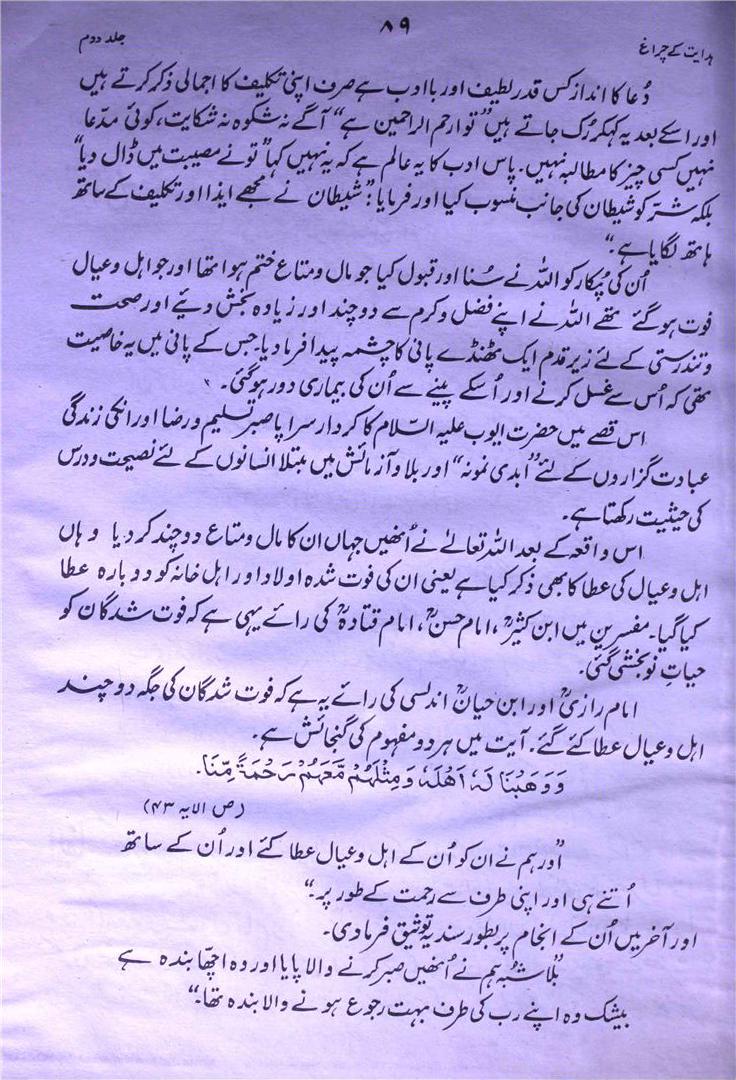 ہدایت کے چراغ
۸۹
جلد دوم
دُعا کا انداز کس قدر لطیف اور باادب ہے صرف اپنی تکلیف کا اجمالی ذکر کرتے ہیں
اور اسکے بعد یہ کہکر رُک جاتے ہیں "تو ارحم الراحمین ہے" آگے نہ شکوہ نہ شکایت، کوئی مدّعا
نہیں کسی چیز کا مطالبہ نہیں۔ پاس ادب کا یہ عالم ہے کہ یہ نہیں کہا "تو نے مصیبت میں ڈال دیا"
بلکہ شرّ کو شیطان کی جانب منسوب کیا اور فرمایا: "شیطان نے مجھے ایذا اور تکلیف کے ساتھ
ہاتھ لگایا ہے۔"
اُن کی پُکار کو اللہ نے سُنا اور قبول کیا جو مال و متاع ختم ہوا تھا اور جو اہل و عیال
فوت ہو گئے تھے اللہ نے اپنے فضل و کرم سے دو چند اور زیادہ بخش دیئے اور صحت
و تندرستی کے لئے زیر قدم ایک ٹھنڈے پانی کا چشمہ پیدا فرما دیا جس کے پانی میں یہ خاصیت
تھی کہ اُس سے غسل کرنے اور اُسکے پینے سے اُن کی بیماری دور ہو گئی۔
اس قصے میں حضرت ایوب علیہ السّلام کا کردار سراپا صبر تسلیم و رضا اور انکی زندگی
عبادت گزاروں کے لئے "ابدی نمونہ" اور بلا و آزمائش میں مبتلا انسانوں کے لئے نصیحت و درس
کی حیثیت رکھتا ہے۔
اس واقعہ کے بعد اللہ تعالےٰ نے اُنھیں جہاں ان کا مال و متاع دو چند کر دیا وہاں
اہل و عیال کی عطا کا بھی ذکر کیا ہے یعنی ان کی فوت شدہ اولاد اور اہل خانہ کو دوبارہ عطا
کیا گیا۔ مفسرین میں ابن کثیرؒ، امام حسنؒ، امام قتادہؒ کی رائے یہی ہے کہ فوت شدگان کو
حیاتِ نو بخشی گئی۔
امام رازیؒ اور ابن حیانؒ اندلسی کی رائے یہ ہے کہ فوت شدگان کی جگہ دو چند
اہل و عیال عطا کئے گئے۔ آیت میں ہر دو مفہوم کی گنجائش ہے۔
وَوَهَبْنَا لَهٗ اَهْلَهٗ وَمِثْلَهُمْ مَّعَهُمْ رَحْمَةً مِّنَّا۔
(ص الایہ ۴۳)
"اور ہم نے ان کو اُن کے اہل و عیال عطا کئے اور اُن کے ساتھ
اُتنے ہی اور اپنی طرف سے رحمت کے طور پر۔"
اور آخر میں اُن کے انجام پر بطور سند یہ توثیق فرما دی۔
"بلاشبہ ہم نے اُنھیں صبر کرنے والا پایا اور وہ اچھّا بندہ ہے
بیشک وہ اپنے رب کی طرف بہت رجوع ہونے والا بندہ تھا۔"